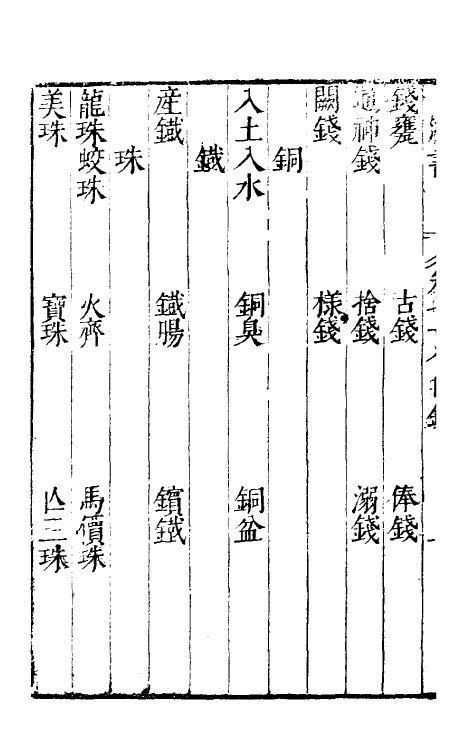 錢甕 古錢 俸錢
通神錢 捨錢 溺錢
闕錢 樣錢
銅
入土入水 銅臭 銅盆
鐵
產鐵 鐵腸 鑌鐵
珠
龍珠蛟珠 火齊 馬價珠
美珠 寶珠 亾三珠